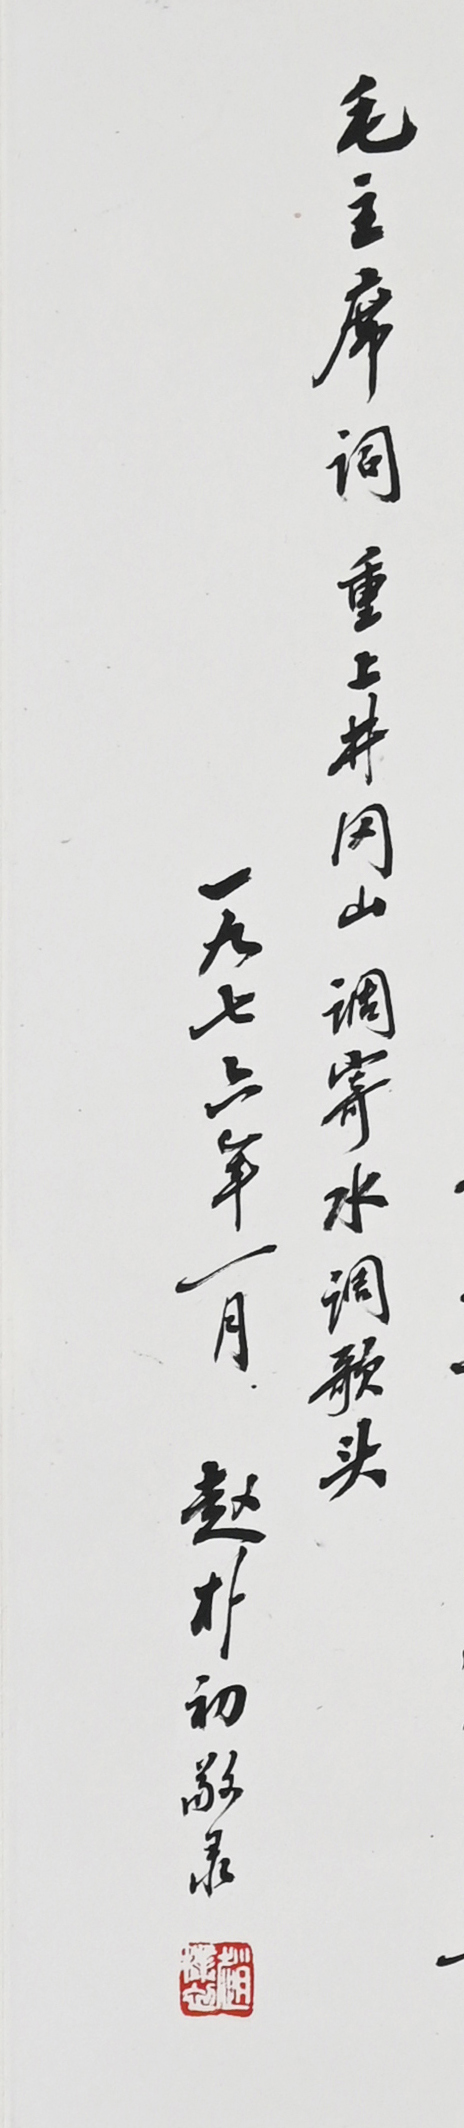 毛主席词 重上井冈山 调寄水调歌头
一九七六年一月 赵朴初敬录